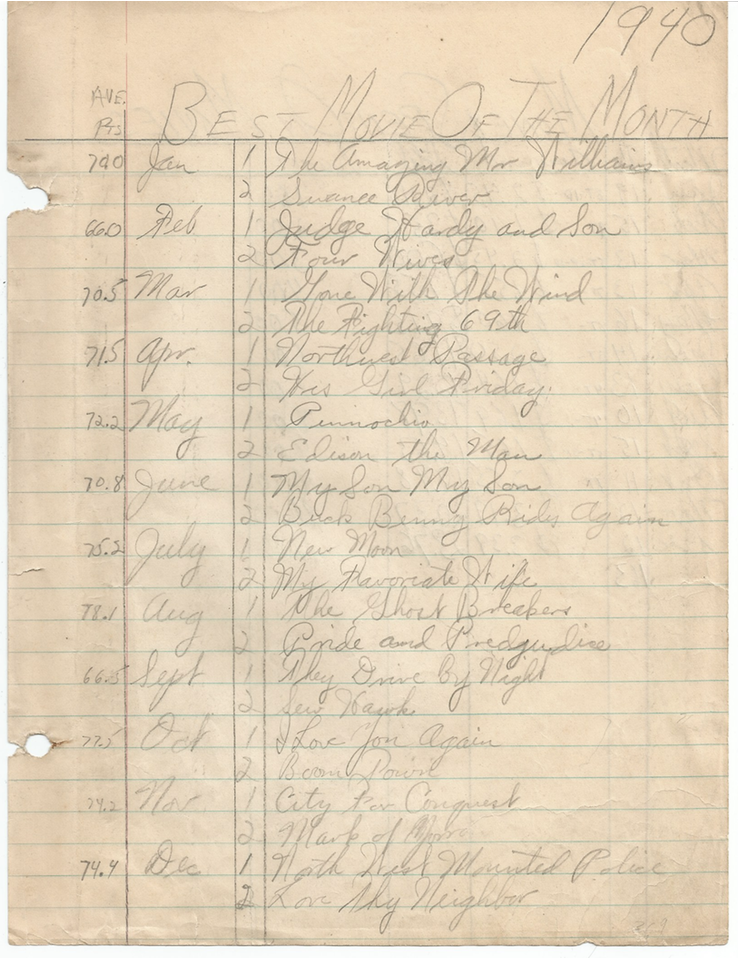 1940
AVE. BEST MOVIE OF THE MONTH
Pts
74.0 Jan 1 The Amazing Mr Williams
2 Swanee River
66.0 Feb 1 Judge Hardy and Son
2 Four Wives
70.5 Mar 1 Gone With The Wind
2 The Fighting 69th
71.5 Apr. 1 Northwest Passage
2 His Girl Friday
72.2 May 1 Pinnochio
2 Edison the Man
70.8 June 1 My Son My Son
2 Buck Benny Rides Again
75.2 July 1 New Moon
2 My Favoriate Wife
78.1 Aug 1 The Ghost Breakers
2 Pride and Predgudice
66.5 Sept 1 They Drive By Night
2 Sea Hawk
77.5 Oct 1 I Love You Again
2 Boom Town
74.2 Nov 1 City For Conquest
2 Mark of Zorro
74.4 Dec 1 North West Mounted Police
2 Love Thy Neighbor